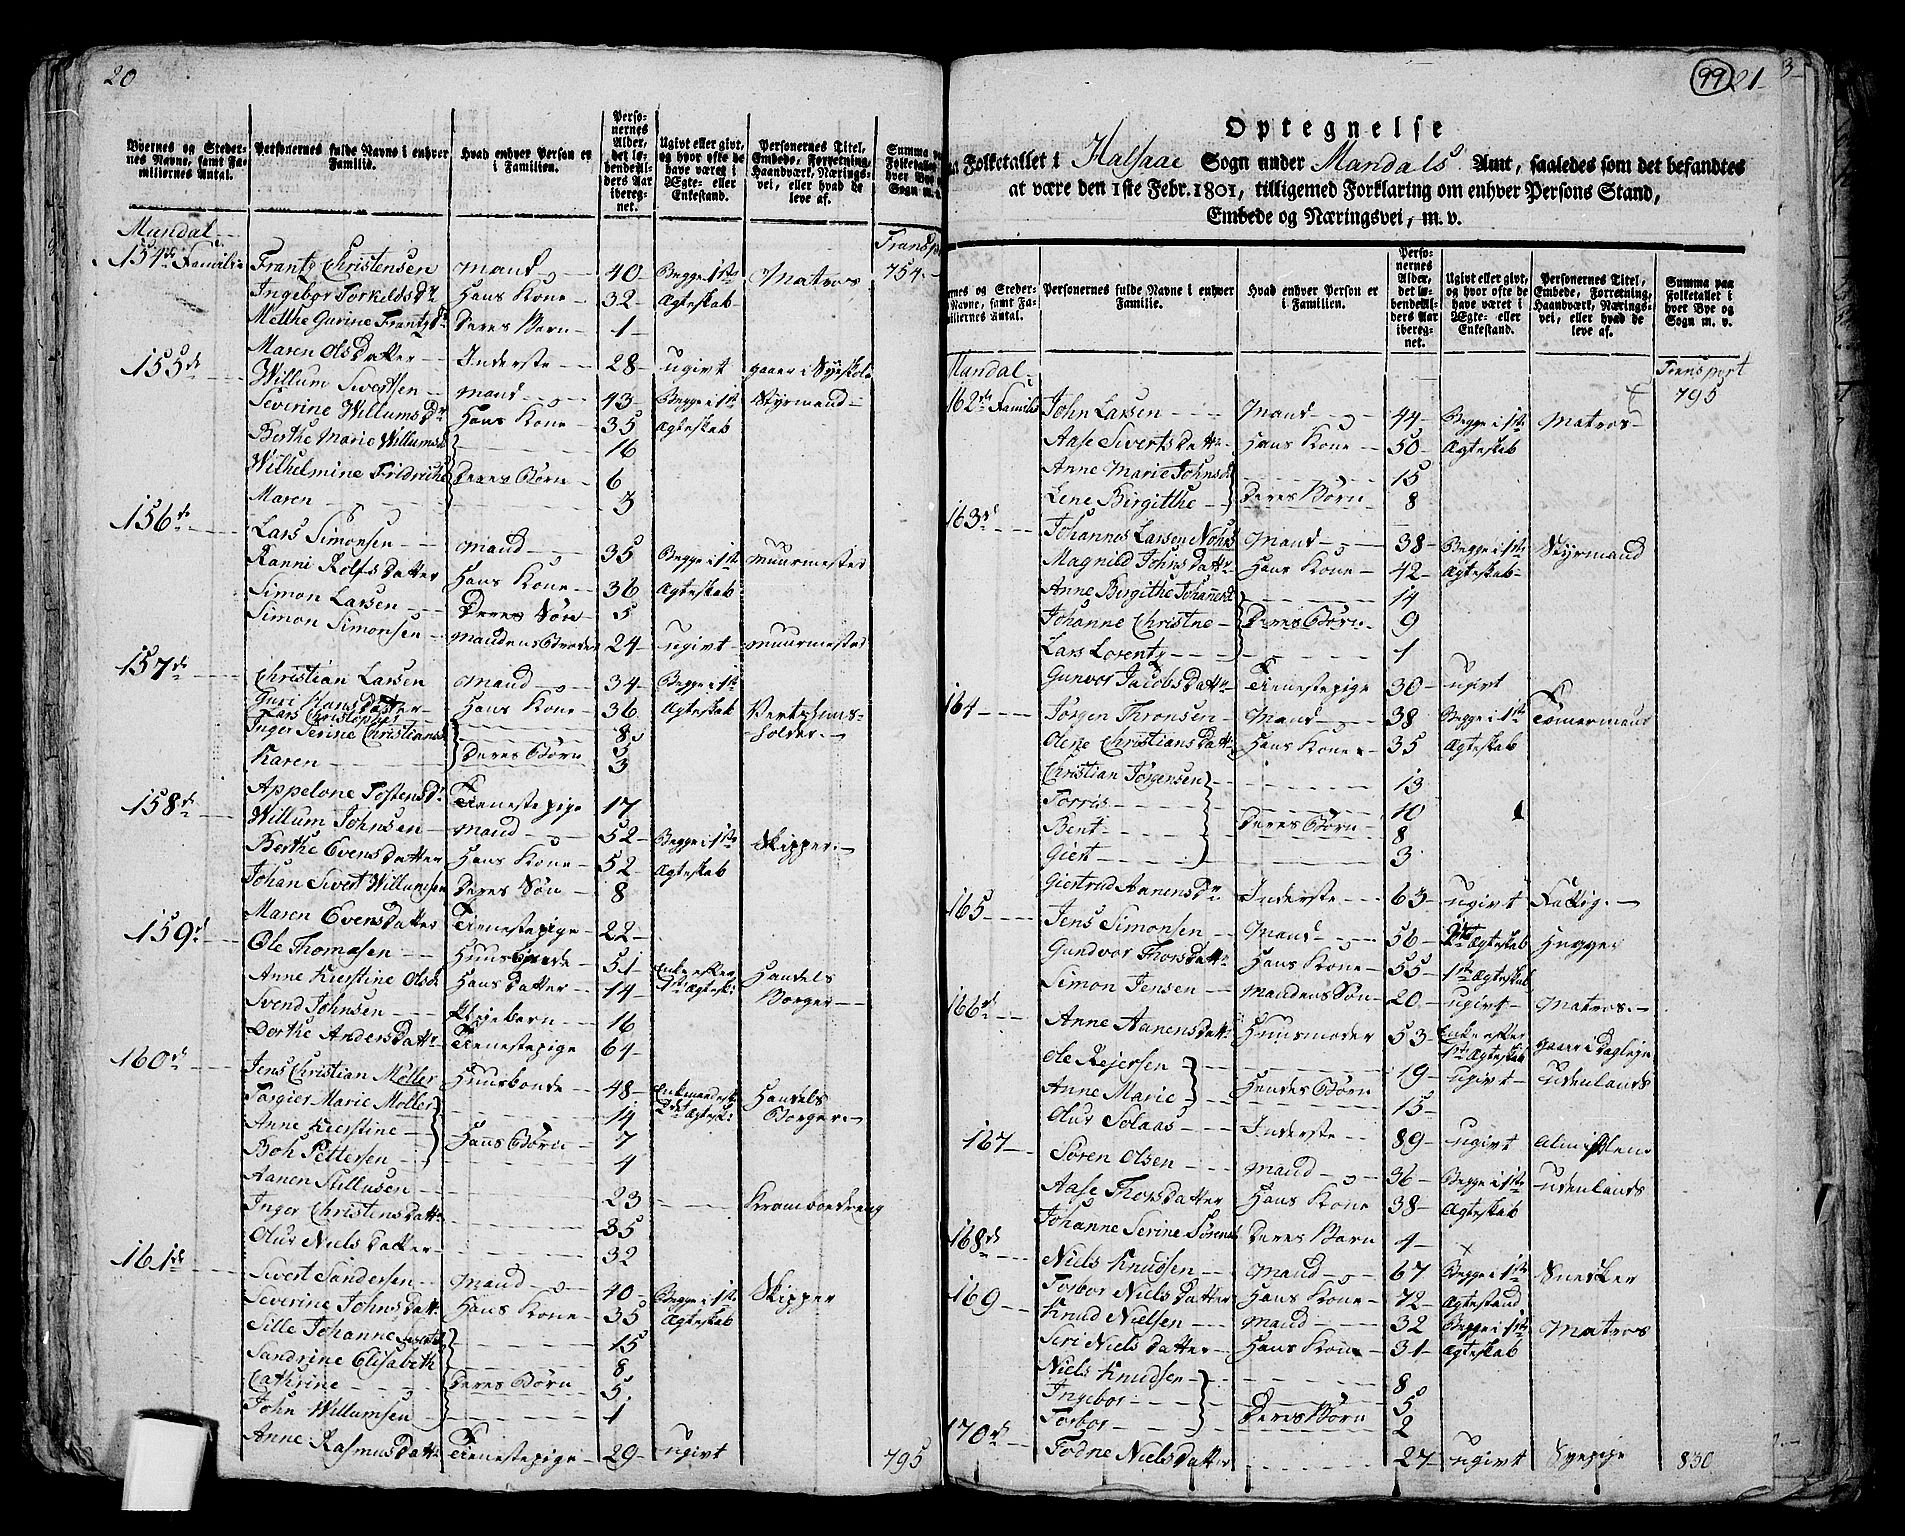 20
Byernes og Steder-
nes Navne, samt Fa-
miliernes Antal.
Personernes fulde Navne i enhver
Familie.
Hvad enhver Person er
i Familien.
Perso-
nernes
Alder,
det lø-
bende Al-
ders Aar
ibereg-
net.
Ugivt eller givt,
og hvor ofte de
have været i
Ægte- eller
Enkestand.
Personernes Titel,
Embede, Forretning,
Haandværk, Nærings-
vei, eller hvad de
leve af.
Summa paa
Folketallet
hver Bye
Sogn m.
Mandal
Transp
154de Familie Frantz Christensen Mand 40 Begge i 1ste Matros 754
Ingebor Torkelds Dr Hans Kone 32 Ægteskab
Methe Gurine Frantz Dr Deres Barn 1
Maren Ols Datter Inderste 28 ugivt gaaer i Syeskole
155de Willum Sivertsen Mand 43 Begge i 1ste Styrmand
Severine Willums Dr Hans Kone 35 Ægteskab
Berthe Marie Willumsd 16
Wilhelmine Fridriche Deres Børn 6
Maren 3
156de Lars Simonsen Mand 35 Begge i 1ste Muurmester
Ranni Rolfs Datter Hans Kone 36 Ægteskab
Simon Larsen Deres Søn 5
Simon Simonsen Mandens Broder 24 ugivt Muurmester
157de Christian Larsen Mand 34 Begge i 1ste
Guri Hans Datter Hans Kone 36 Ægteskab Vertshuus-
Lars Christopher 8 holder
Inger Serine Christians 5
Karen Deres Børn 3
Appelone Tostens Dr Tienestepige 17
158de Willum Johnsen Mand 52 Begge i 1ste Skipper
Berthe Evens Datter Hans Kone 52 Ægteskab
Johan Sivert Willumsen Deres Søn 8
Maren Evens Datter Tienestepige 22
159d Ole Thomesen Huusbonde 51 Enke efter Handels
Anne Kierstine Olsd Hans Datter 14 1ste Ægtesk: Borger
Svend Johnsen Plejebarn 16
Dorthe Anders Datter Tienestepige 64
160de Jens Christian Møller Huusbonde 48 Enkemand eft Handels
Torgier Marie Møller 14 2det Ægtesk: Borger
Anne Kierstine Hans Børn 7
Boh Pettersen 4
Aanen Stillusen 23 Kramboedreng
Inger Christens Datter 35
Olur Niels Datter 32
161de Sivert Sandersen Mand 40 Begge i 1ste Skipper
Severine Johns Datt: Hans Kone 35 Ægteskab
Sille Johanne 15
Sandrine Elisabeth 8
Cathrine Deres Børn 5
John Willumsen 1
Anne Rasmus Datt: Tienestepige 29 ugivt 795
99 21
Optegnelse
Folketallet i Halsaae Sogn under Mandals Amt, saaledes som det befandtes
at være den 1ste Febr. 1801, tilligemed Forklaring om enhver Persons Stand,
Embede og Næringsvei, m. v.
rnes og Steder-
Navne, samt Fa-
miliernes Antal.
Personernes fulde Navne i enhver
Familie.
Hvad enhver Person er
i Familien.
Perso-
nernes
Alder,
det lø-
bende Al-
ders Aar
ibereg-
net.
Ugivt eller givt,
og hvor ofte de
have været i
Ægte- eller
Enkestand.
Personernes Titel,
Embede, Forretning,
Haandværk, Nærings-
vei, eller hvad de
leve af.
Summa paa
Folketallet i
hver Bye og
Sogn m. v.
Mandal
Transport
795
162de Familie John Larsen Mand 44 Begge i 1ste Matros
Aase Siverts Datt: Hans Kone 50 Ægteskab
Anne Marie Johnsd 15
Lene Birgitthe Deres Børn 8
163d Johannes Larsen Mand 38 Begge i 1ste Styrmand
Magnild Johns Datt: Hans Kone 42 Ægteskab
Anne Birgithe Johannesd 14
Johanne Christne Deres Børn 9
Lars Lorentz 1
Gunvor Jacobs Datter Tienestepige 30 ugivt
164 Jørgen Thronsen Mand 38 Begge i 1ste Tømermand
Olene Christians Datt: Hans Kone 35 Ægteskab
Christian Jørgensen 13
Torris 10
Bent Deres Børn 8
Giert 3
Giertrud Aanens Dr Inderste 63 ugivt Fattig
165 Jens Simonsen Mand 56 Ægteskab Hugger
Gundvor Thors Datter Hans Kone 55 1ste Ægteskab
Simon Jensen Mandens Søn 20 ugivt Matros
166d Anne Aanens Datt: Huusmoder 53 Enke efter gaaer i Dagleje
1ste Ægteskab
Ole Rejersen 19 ugivt udenlands
Anne Marie Hendes Børn 15
Olur Solaas Inderste 89 ugivt Almislem
167 Søren Olsen Mand 36 Begge i 1ste udenlands
Aase Thors Datter Hans Kone 38 Ægteskab
Johanne Serine Sørens Deres Barn 4
168de Niels Knudsen Mand 67 Begge i 1ste Snecker
Torbor Niels Datter Hans Kone 72 Ægtestand
169 Knud Nielsen Mand 32 Begge i 1ste Matros
Seri Niels Datter Hans Kone 31 Ægteskab
Niels Knudsen 8
Ingebor 5
Torbor Deres Børn 2
170de Todne Niels Datter 27 ugivt Syepige 830